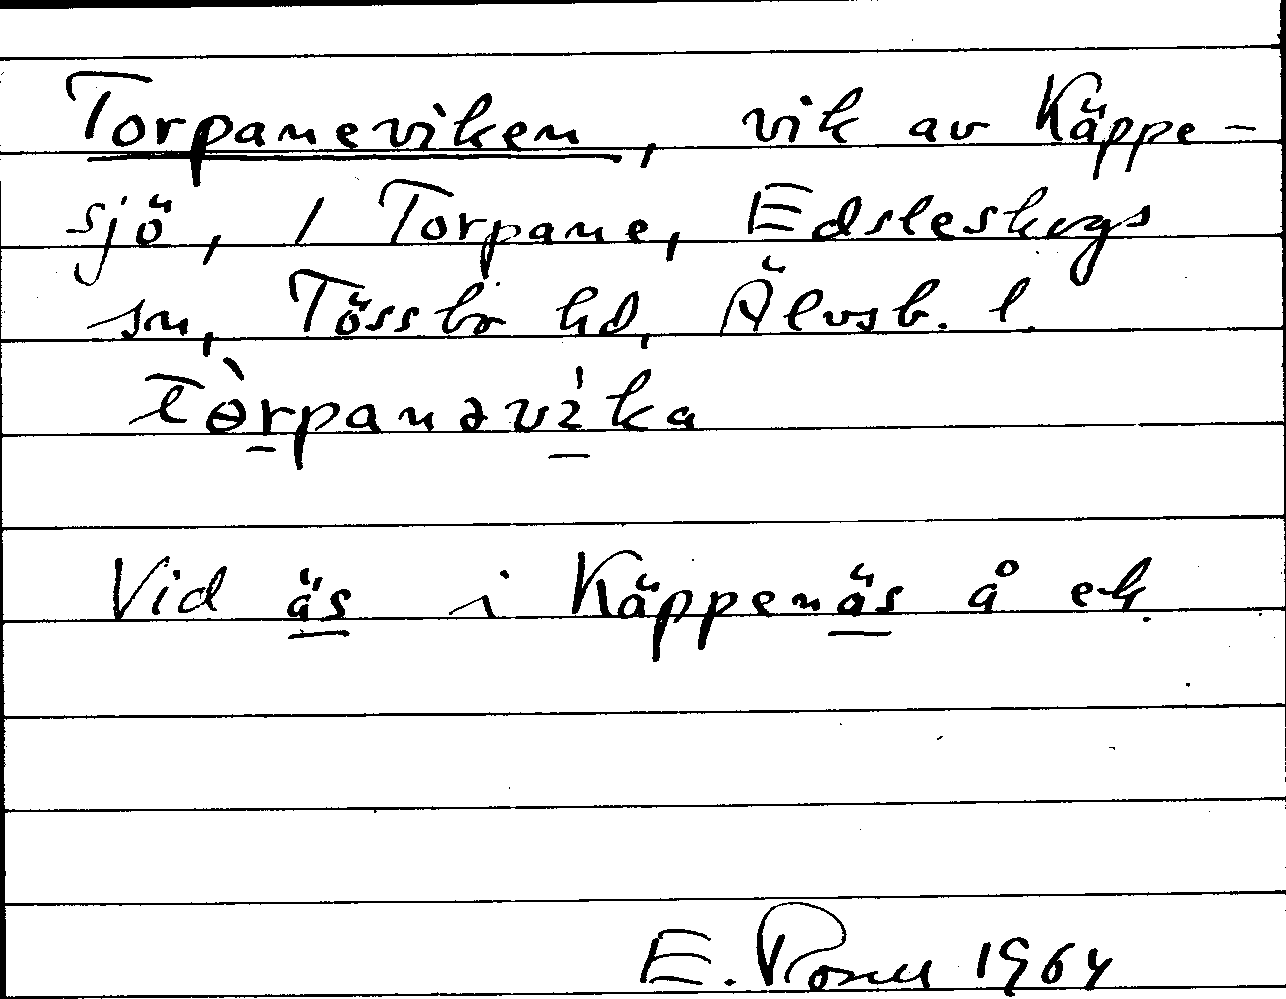 Torpaneviken, vik av Käppe-
sjö, / Torpane, Edsleskogs
sn, Tössbo hd, Älvsb. l.
tɵ̀rpanəvi̍ka
Vid äs i Käppenäs å ek.
E. Rosell 1964